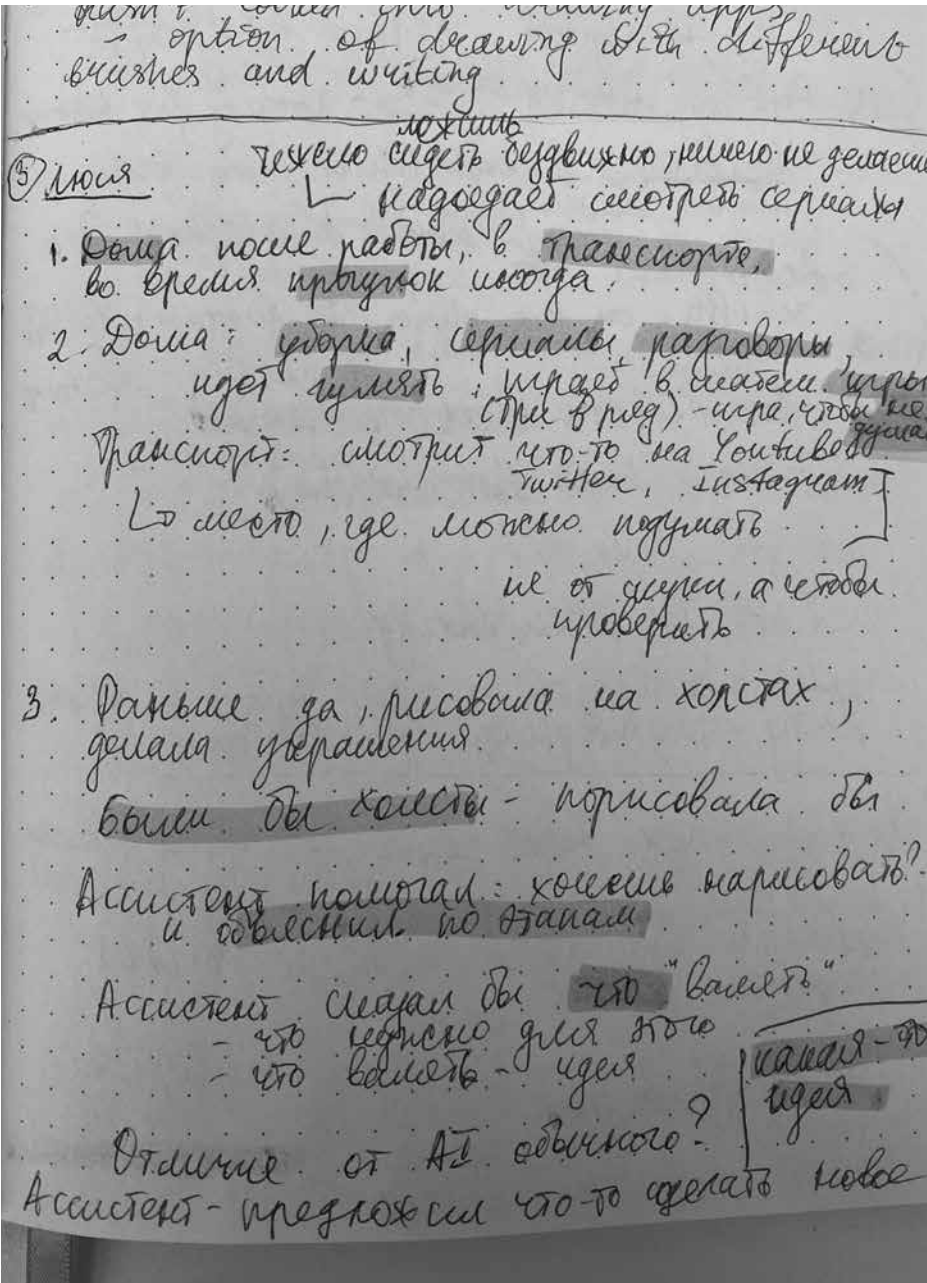 option of drawing with different
brushes and writing
5 июля
сидеть бездвижно, ничего не делаешь
надоедает смотреть сериалы
1. Дома после работы, в транспорте,
во время прогулок иногда
2. Дома: уборка, сериалы, разговоры,
идёт гулять, играет в игры
(три в ряд) - игра, чтобы не
думать
Транспорт: смотрит что-то на Youtube
Twitter, Instagram
место, где можно подумать
не от скуки, а чтобы
проверить
3. Раньше да, рисовала на холстах,
делала украшения.
Были бы холсты - порисовала бы
Ассистент помогал: хочешь нарисовать?
и объяснил по этапам
Ассистент сказал бы что "валять"
- что нужно для этого
- что валять - идея
какая-то
идея
Отличие от AI обычного?
Ассистент - предложил что-то сделать новое